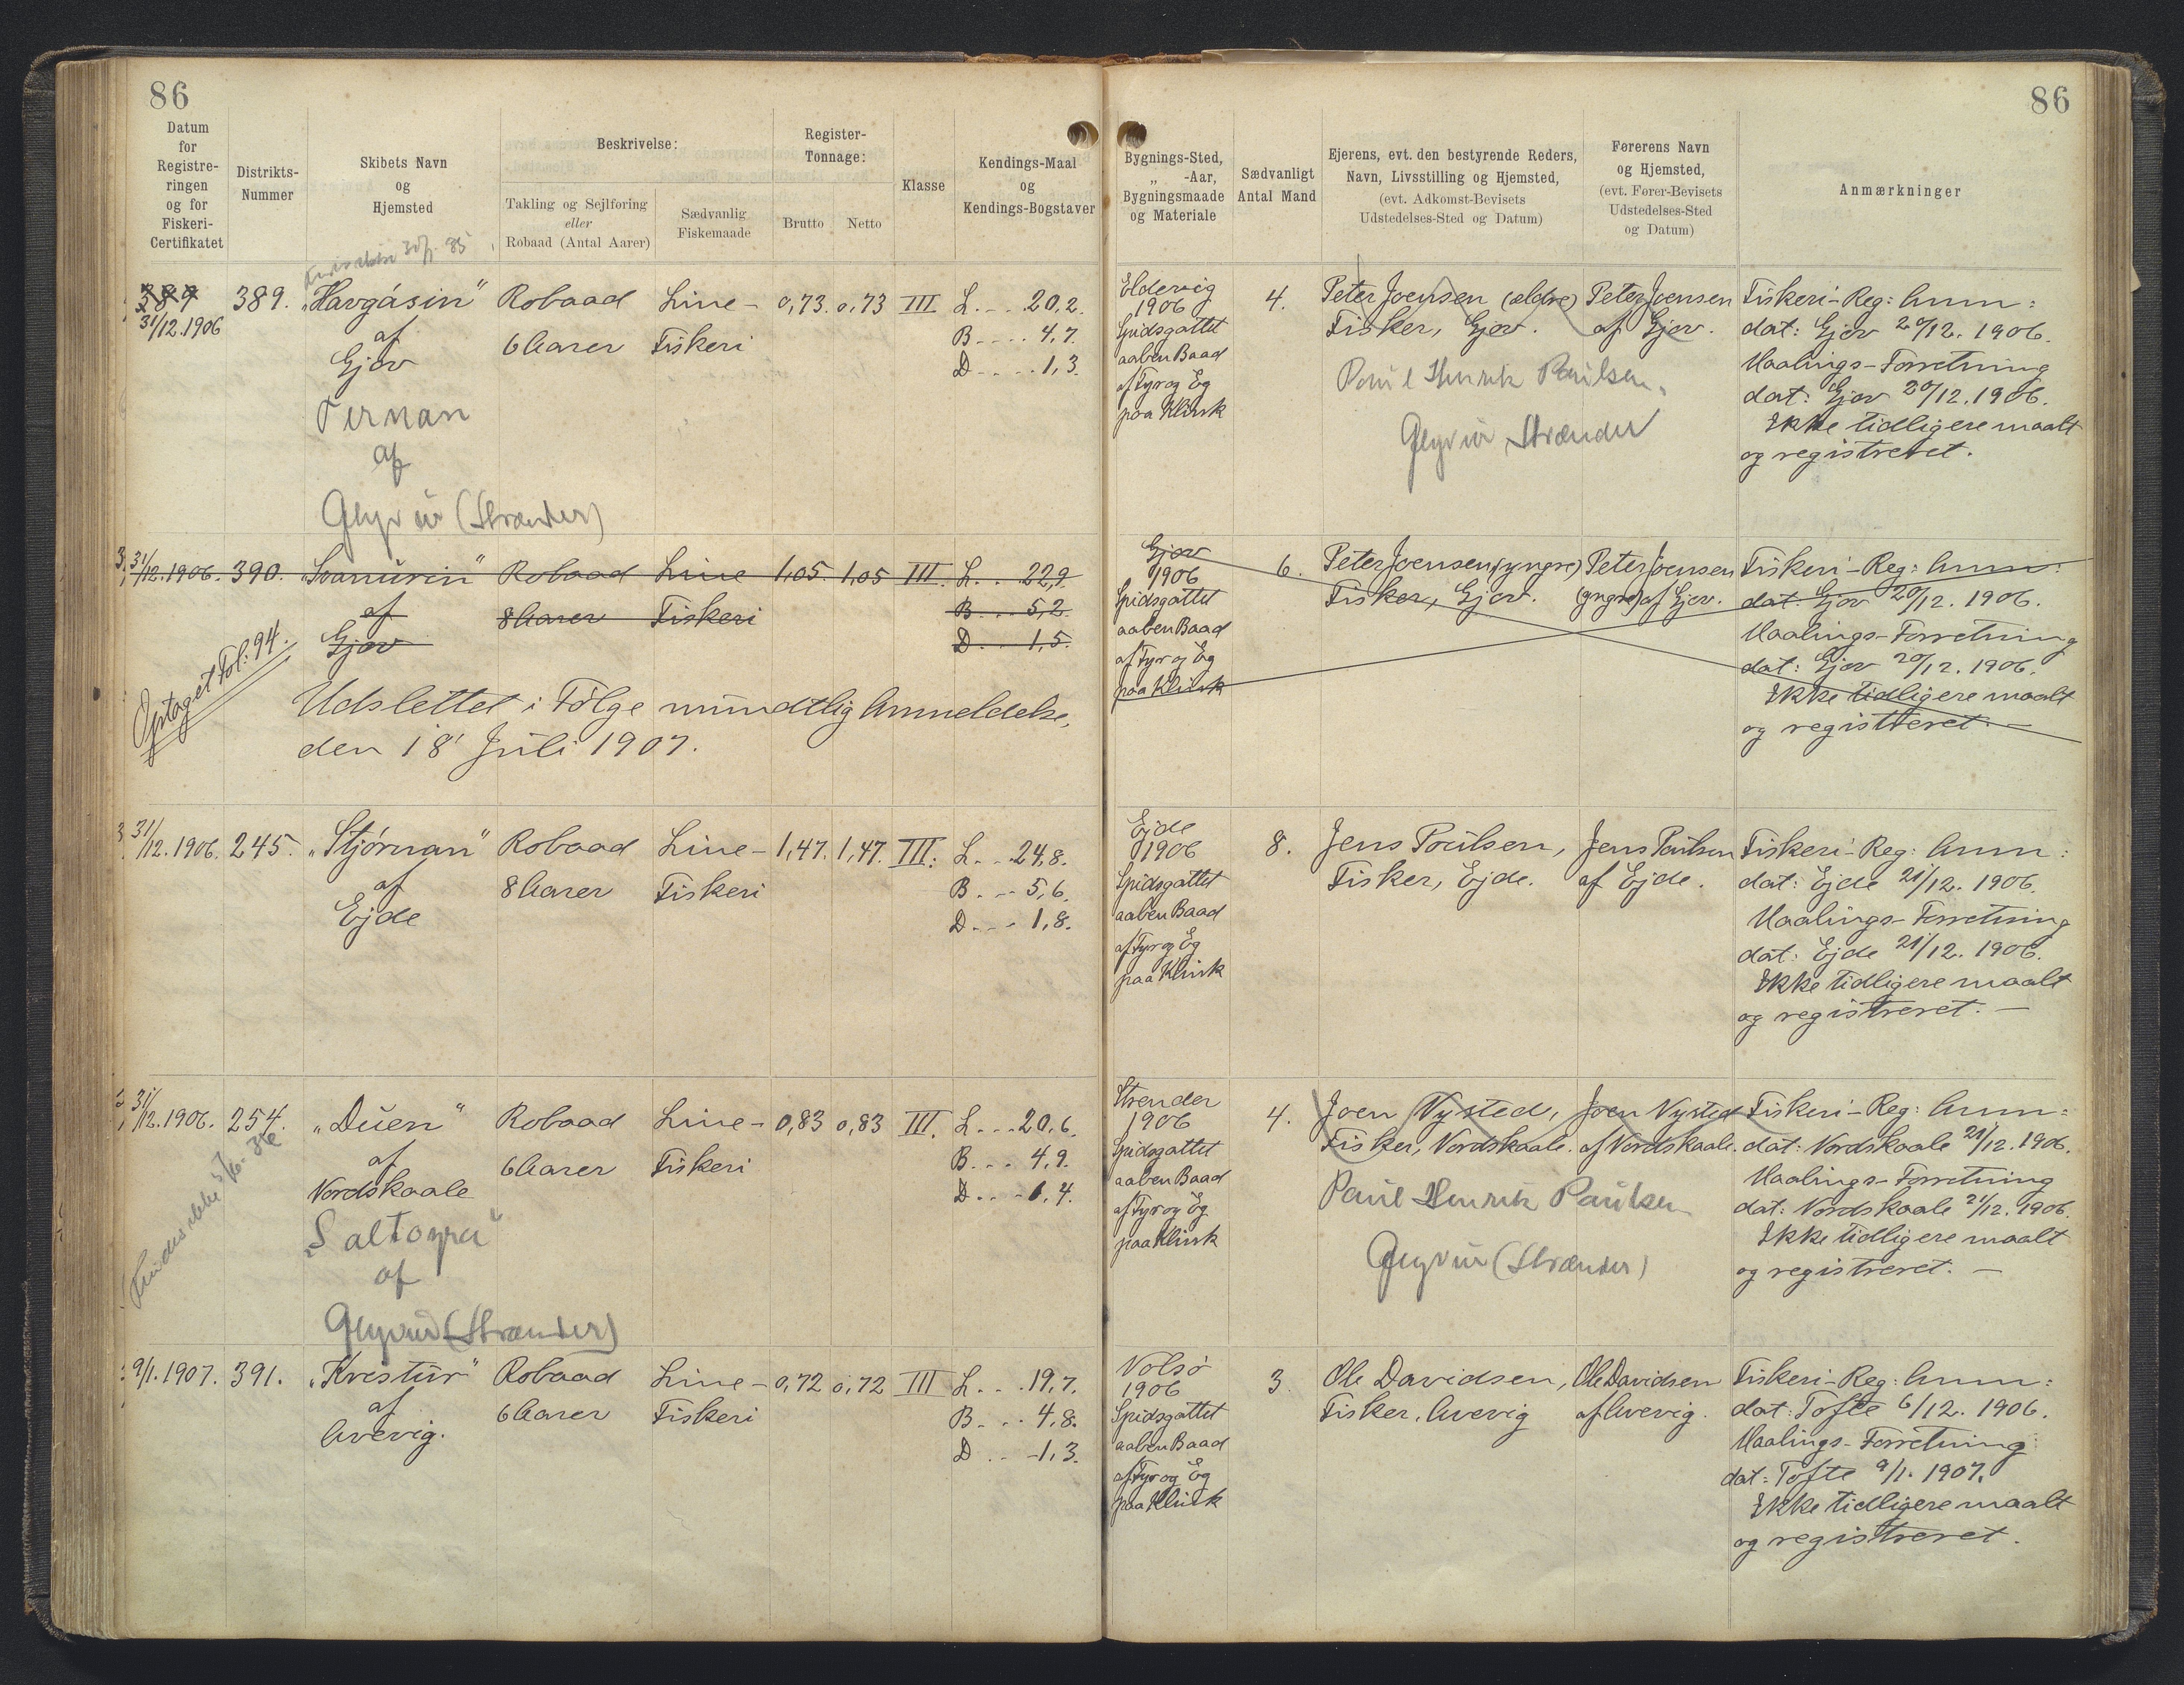 86
86
Datum
for
Registre-
ringen
og for
Fiskeri-
Certifikatet
Distrikts-
Nummer
Skibets Navn
og
Hjemsted
Beskrivelse:
Takling og Sejlføring
eller
Robaad (Antal Aarer)
Sædvanlig
Fiskemaade
Register-
Tonnage:
Brutto Netto
Klasse
Kendings-Maal
og
Kendings-Bogstaver
Bygnings-Sted,
„ -Aar,
Bygningsmaade
og Materiale
Sædvanligt
Antal Mand
Ejerens, evt. den bestyrende Reders,
Navn, Livsstilling og Hjemsted,
(evt. Adkomst-Bevisets
Udstedelses-Sted og Datum)
Førerens Navn
og Hjemsted,
(evt. Fører-Bevisets
Udstedelses-Sted
og Datum)
Anmærkninger
389
31/12.1906
389.
„Havgásin"
af
Gjov
Ternan
af
Glyvur (Strænder)
Robaad
6 Aarer
Line-
Fiskeri
0,73. 0,73 III
L... 20,2.
B.... 4,7.
D.... 1,3.
Eldevig
1906
Spidsgattet
aaben Baad
af Fyr og Eg
paa Klink
4.
Peter Joensen (ældre)
Fisker, Gjov.
Poul Henrik Poulsen.
Glyvur Strænder
Peter Joensen
af Gjov.
Fiskeri-Reg: Anm:
dat: Gjov 20/12. 1906.
Maalings-Forretning
dat: Gjov 20/12. 1906.
Ikke tidligere maalt
og registreret.
31/12.1906. 390.
„Svanurin"
af
Gjov
Robaad
8 Aarer
Line
Fiskeri
1,05. 1,05 III.
L.. 22,9.
B... 5,2.
D.. 1,5.
Optaget Fol: 94.
Udslettet i Følge mundtlig Anmeldelse,
den 18' Juli 1907.
Gjov
1906
Spidsgattet
aaben Baad
af Fyr og Eg
paa Klink
6.
Peter Joensen (yngre)
Fisker, Gjov.
Peter Joensen
(yngre) af Gjov.
Fiskeri-Reg: Anm:
dat: Gjov 20/12. 1906.
Maalings-Forretning
dat: Gjov 20/12. 1906.
Ikke tidligere maalt
og registreret.—
31/12.1906. 245.
„Stjørnan"
af
Ejde
Robaad
8 Aarer
Line-
Fiskeri
1,47. 1,47. III:
L... 24,8.
B... 5,6.
D... 1,8.
Ejde
1906
Spidsgattet
aaben Baad
af Fyr og Eg
paa Klink
8.
Jens Poulsen,
Fisker, Ejde.
Jens Poulsen
af Ejde.
Fiskeri-Reg: Anm:
dat: Ejde 21/12. 1906.
Maalings-Forretning
dat: Ejde 21/12. 1906.
Ikke tidligere maalt
og registreret.—
31/12.1906. 254.
„Duen"
af
Nordskaale
„Saltoyra"
af
Glyvur (Strænder)
Robaad
6 Aarer
Line-
Fiskeri
0,83 0,83 III.
L... 20,6.
B... 4,9.
D... 1,4.
Strender
1906
Spidsgattet
aaben Baad
af Fyr og Eg
paa Klink
4.
Joen Nysted,
Fisker, Nordskaale.
Poul Henrik Poulsen
Glyvur (Strænder)
Joen Nysted
af Nordskaale.
Fiskeri-Reg: Anm:
dat: Nordskaale 21/12. 1906.
Maalings-Forretning
dat: Nordskaale 21/12. 1906.
Ikke tidligere maalt
og registreret.—
9/1.1907. 391.
„Krestur"
af
Avevig.
Robaad
6 Aarer
Line-
Fiskeri
0,72 0,72 III
L... 19,7.
B... 4,8.
D... 1,3.
Nolsö
1906
Spidsgattet
aaben Baad
af Fyr og Eg
paa Klink
3.
Ole Davidsen,
Fisker, Avevig
Ole Davidsen
af Avevig.
Fiskeri-Reg: Anm:
dat: Tofte 6/12. 1906.
Maalings-Forretning
dat: Tofte 9/1. 1907.
Ikke tidligere maalt
og registreret.